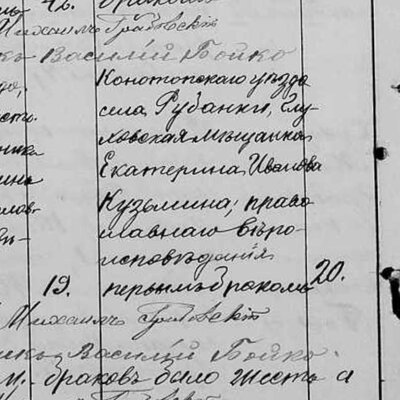 42. бракомъ
Михаилъ Грабовскій
Василій Бойко
Конотопскаго уѣзда
села Рубанки, Глу-
ховская мѣщанка
Екатерина Иванова
Кузьмина; право
славнаго вѣро-
исповѣданія
19. первымъ бракомъ 20.
Михаилъ Грабовскій
Василій Бойко.
браковъ было шесть а